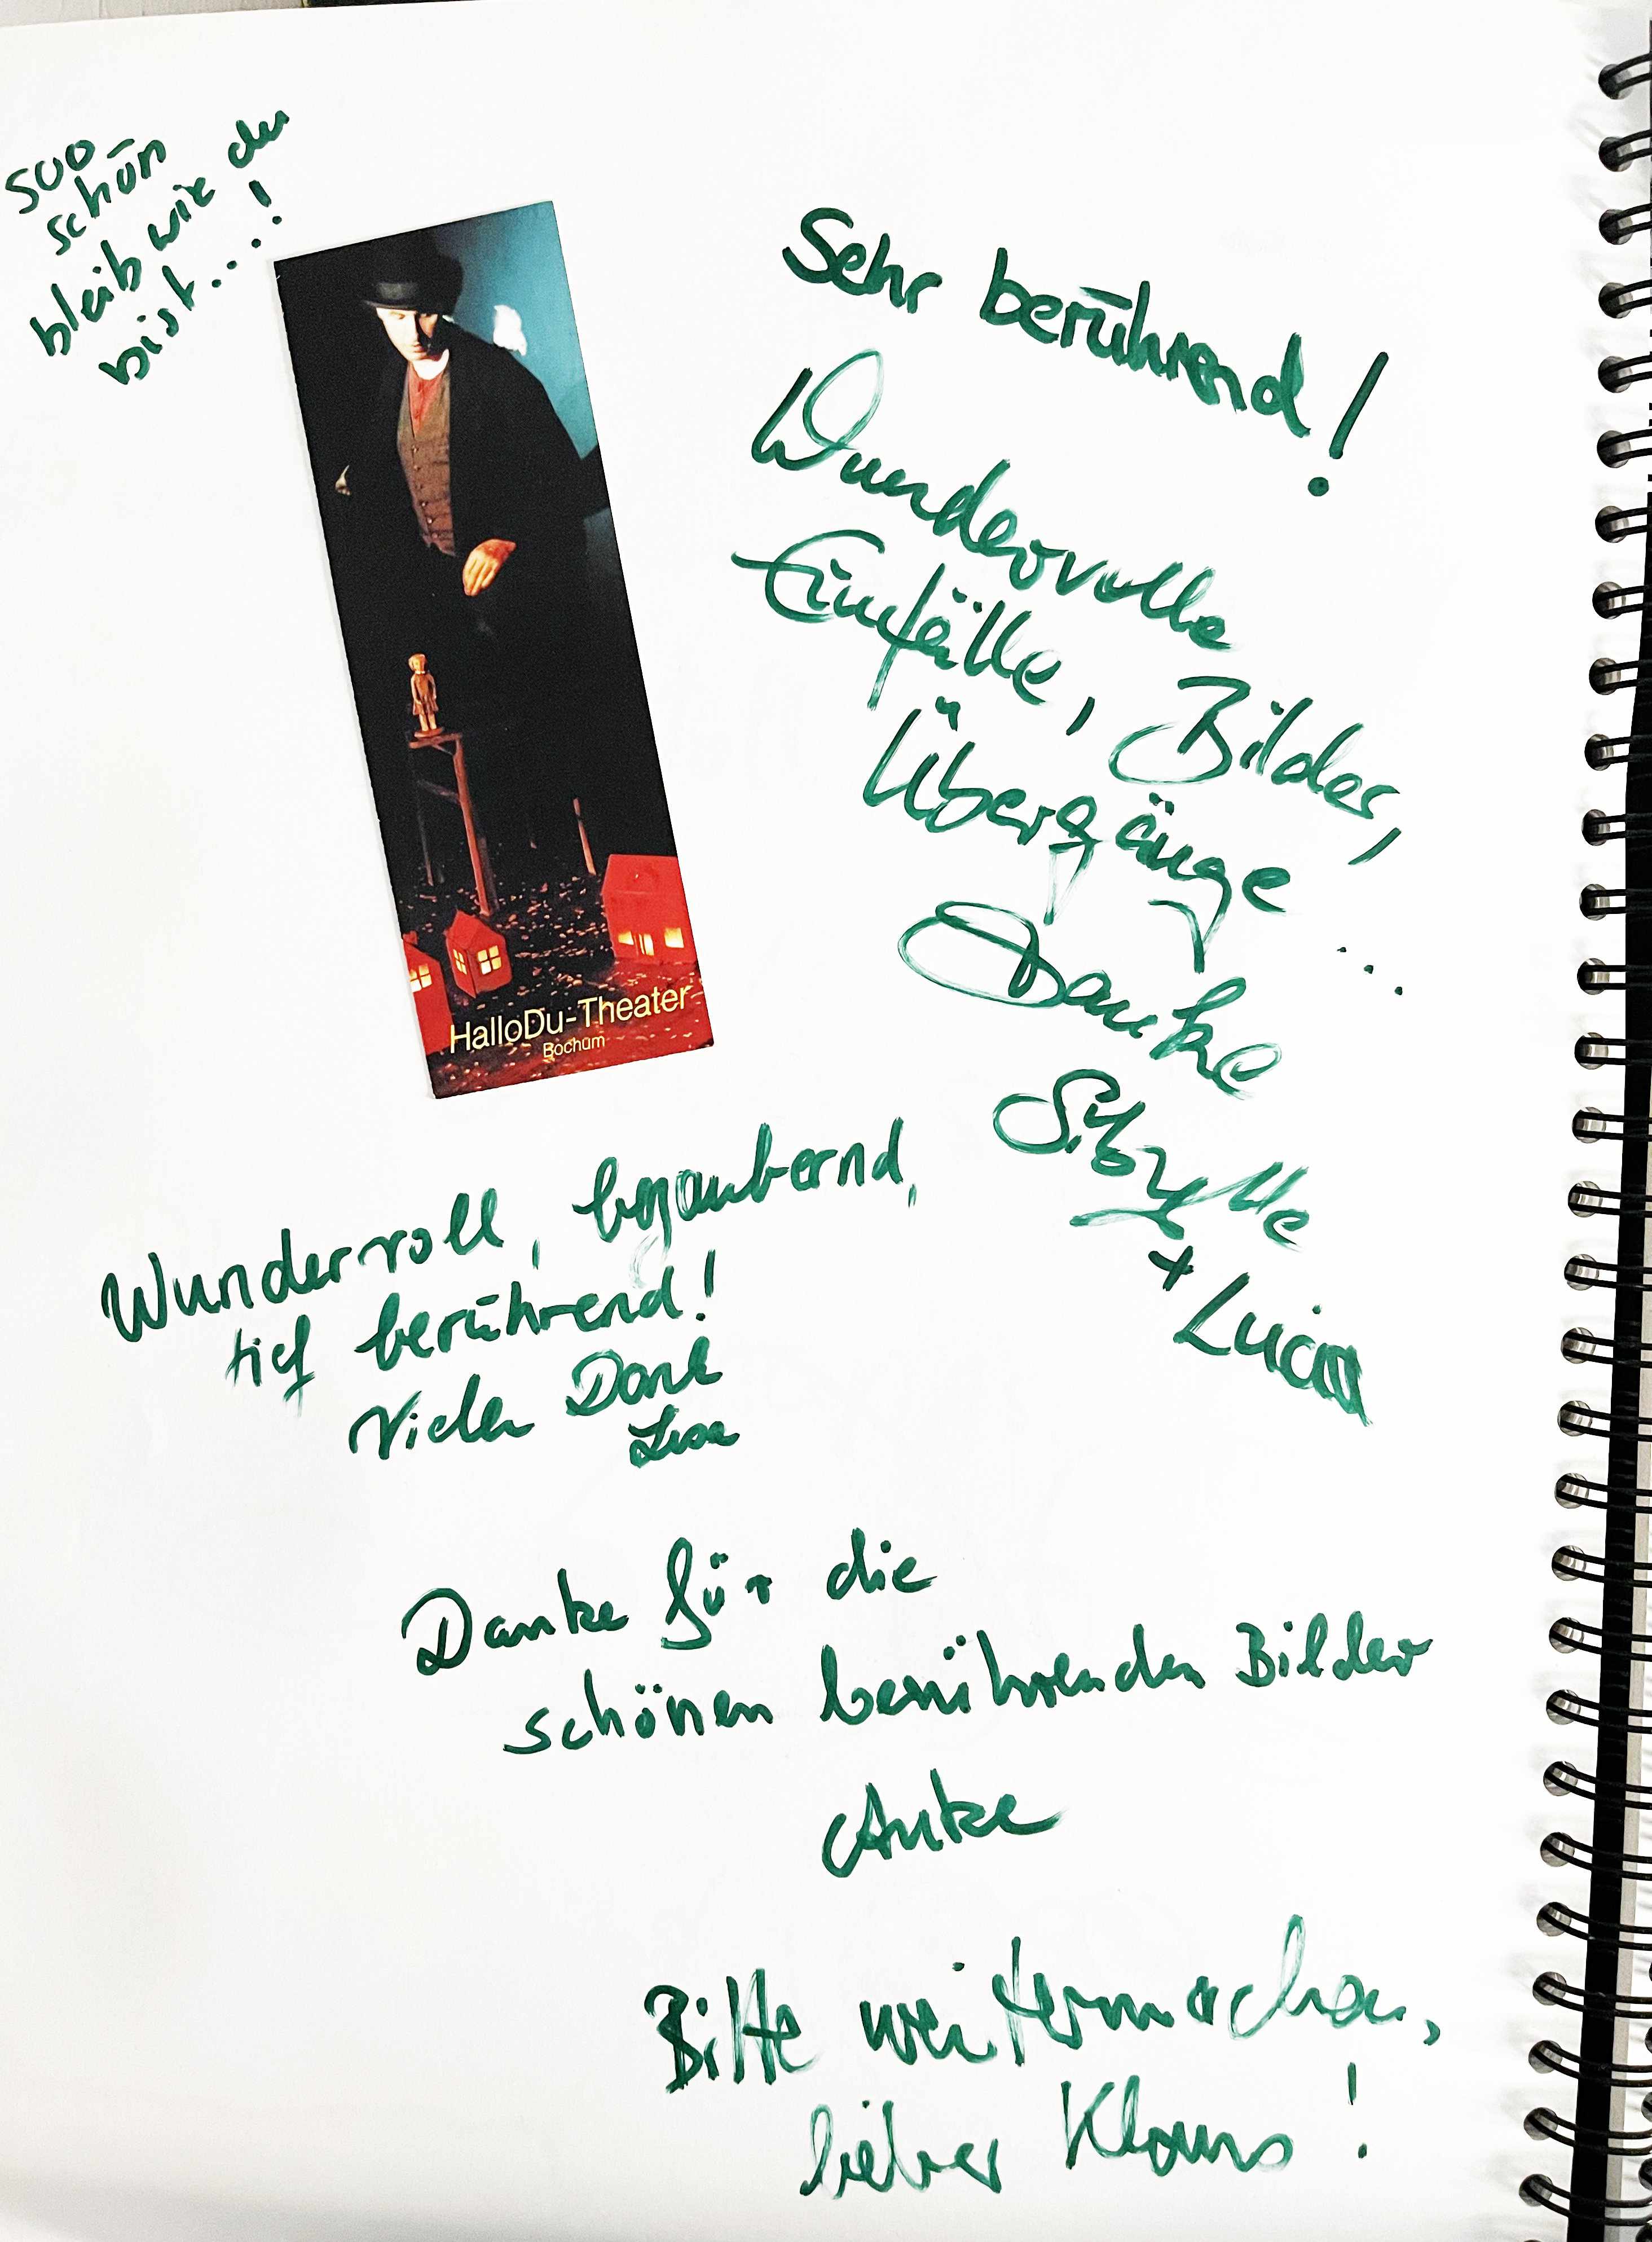 soo
schön
bleib wie du
bist...!
HalloDu-Theater
Bochum
Sehr berührend!
Wundervolle
Einfälle, Bilder,
Übergänge ...
Danke
Sibylle
+ Lucia
Wundervoll, bezaubernd,
tief berührend!
Vielen Dank
Lisa
Danke für die
schönen berührenden Bilder
Anke
Bitte weitermachen,
lieber Klaus!